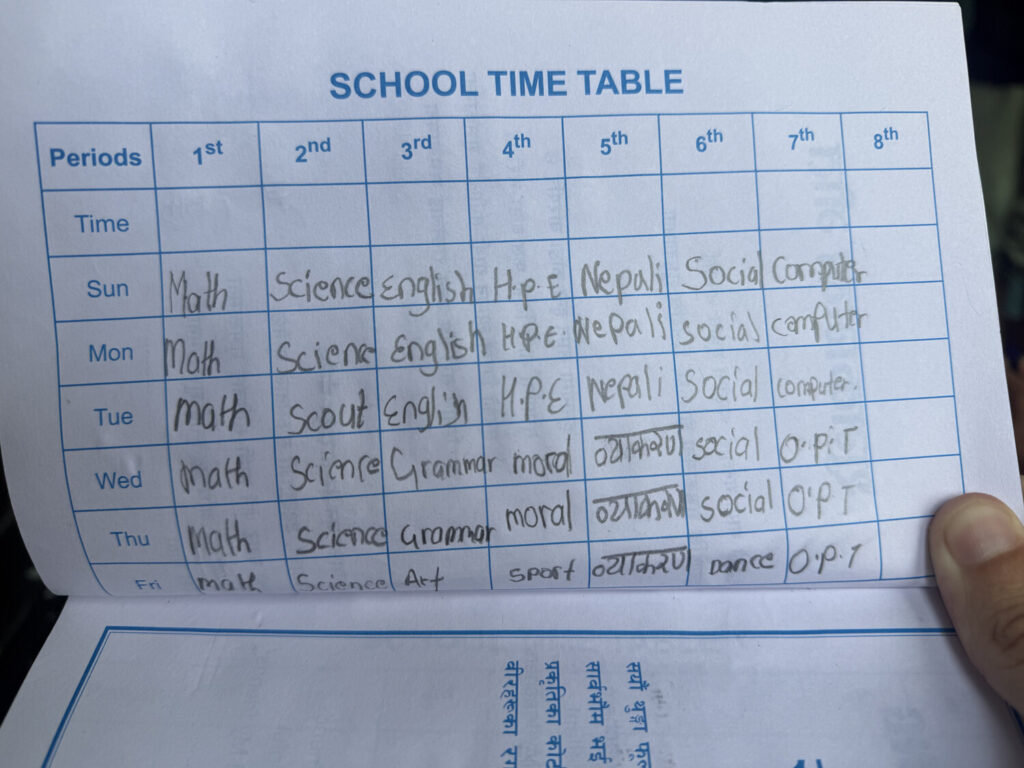 SCHOOL TIME TABLE
Periods 1st 2nd 3rd 4th 5th 6th 7th 8th
Time
Sun Math Science English H.P.E Nepali Social Computer
Mon Math Scienc English H.P.E. Nepali social computer
Tue math scout English H.P.E Nepali social computer.
Wed math Science Grammar moral व्याकरण social O.P.T
Thu math Science Grammar moral व्याकरण social O.P.T
Fri math Science Art sport व्याकरण Dance O.P.T
सयौं थुङ्गा
सार्वभौम भई
प्रकृतिका
वीरहरूका